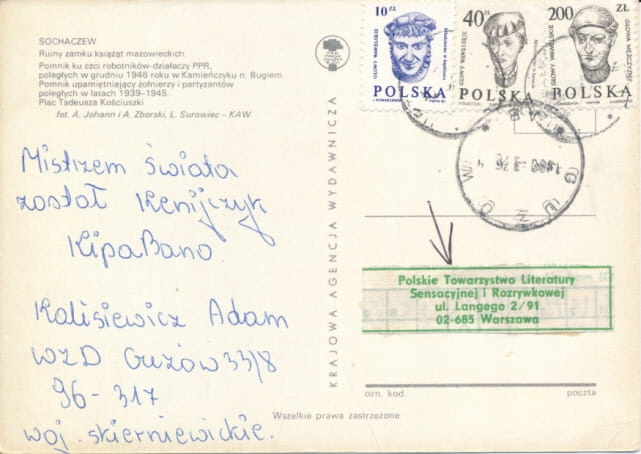 SOCHACZEW
Ruiny zamku książąt mazowieckich.
Pomnik ku czci robotników-działaczy PPR,
poległych w grudniu 1946 roku w Kamieńczyku n. Bugiem.
Pomnik upamiętniający żołnierzy i partyzantów
poległych w latach 1939-1945.
Plac Tadeusza Kościuszki
fot. A. Johann i A. Zborski, L. Surowiec - KAW
Mistrzem świata
został Kenijczyk
KipaBano
Kalisiewicz Adam
WZD Guzów 33/8
96-317
woj. skierniewickie.
KRAJOWA AGENCJA WYDAWNICZA
10 ZŁ
GŁOWY WAWELSKIE
POLSKA
40 ZŁ
GŁOWY WAWELSKIE
POLSKA
200 ZŁ
GŁOWY WAWELSKIE
POLSKA
Polskie Towarzystwo Literatury
Sensacyjnej i Rozrywkowej
ul. Langego 2/91
02-685 Warszawa
ozn. kod
poczta
Wszelkie prawa zastrzeżone